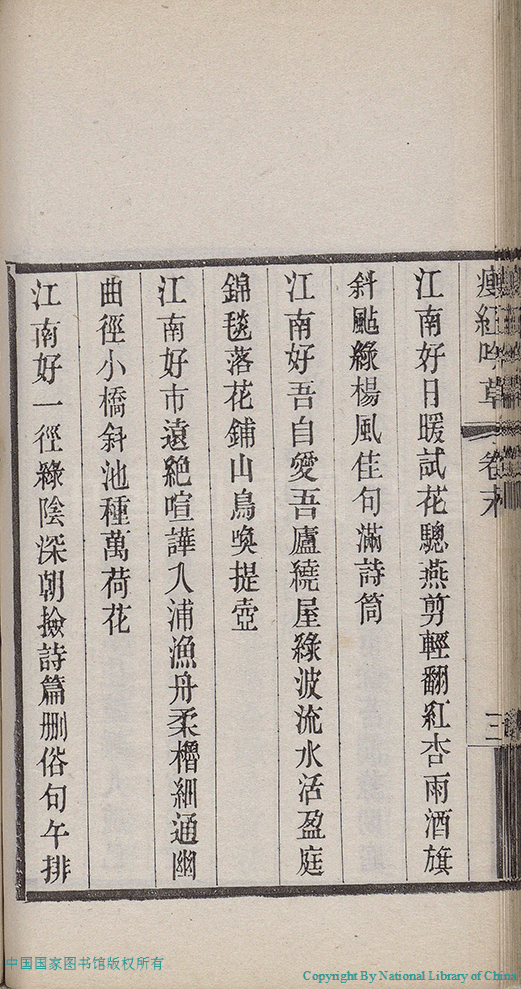 瘦紅吟草 卷末 三
江南好日暖試花驄燕剪輕翻紅杏雨酒旗
斜颭綠楊風佳句滿詩筒
江南好吾自愛吾廬繞屋綠波流水活盈庭
錦毯落花鋪山鳥喚提壺
江南好市遠絕喧譁入浦漁舟柔櫓細通幽
曲徑小橋斜池種萬荷花
江南好一徑綠陰深朝撿詩篇刪俗句午排
中国国家图书馆版权所有
Copyright By National Library of China